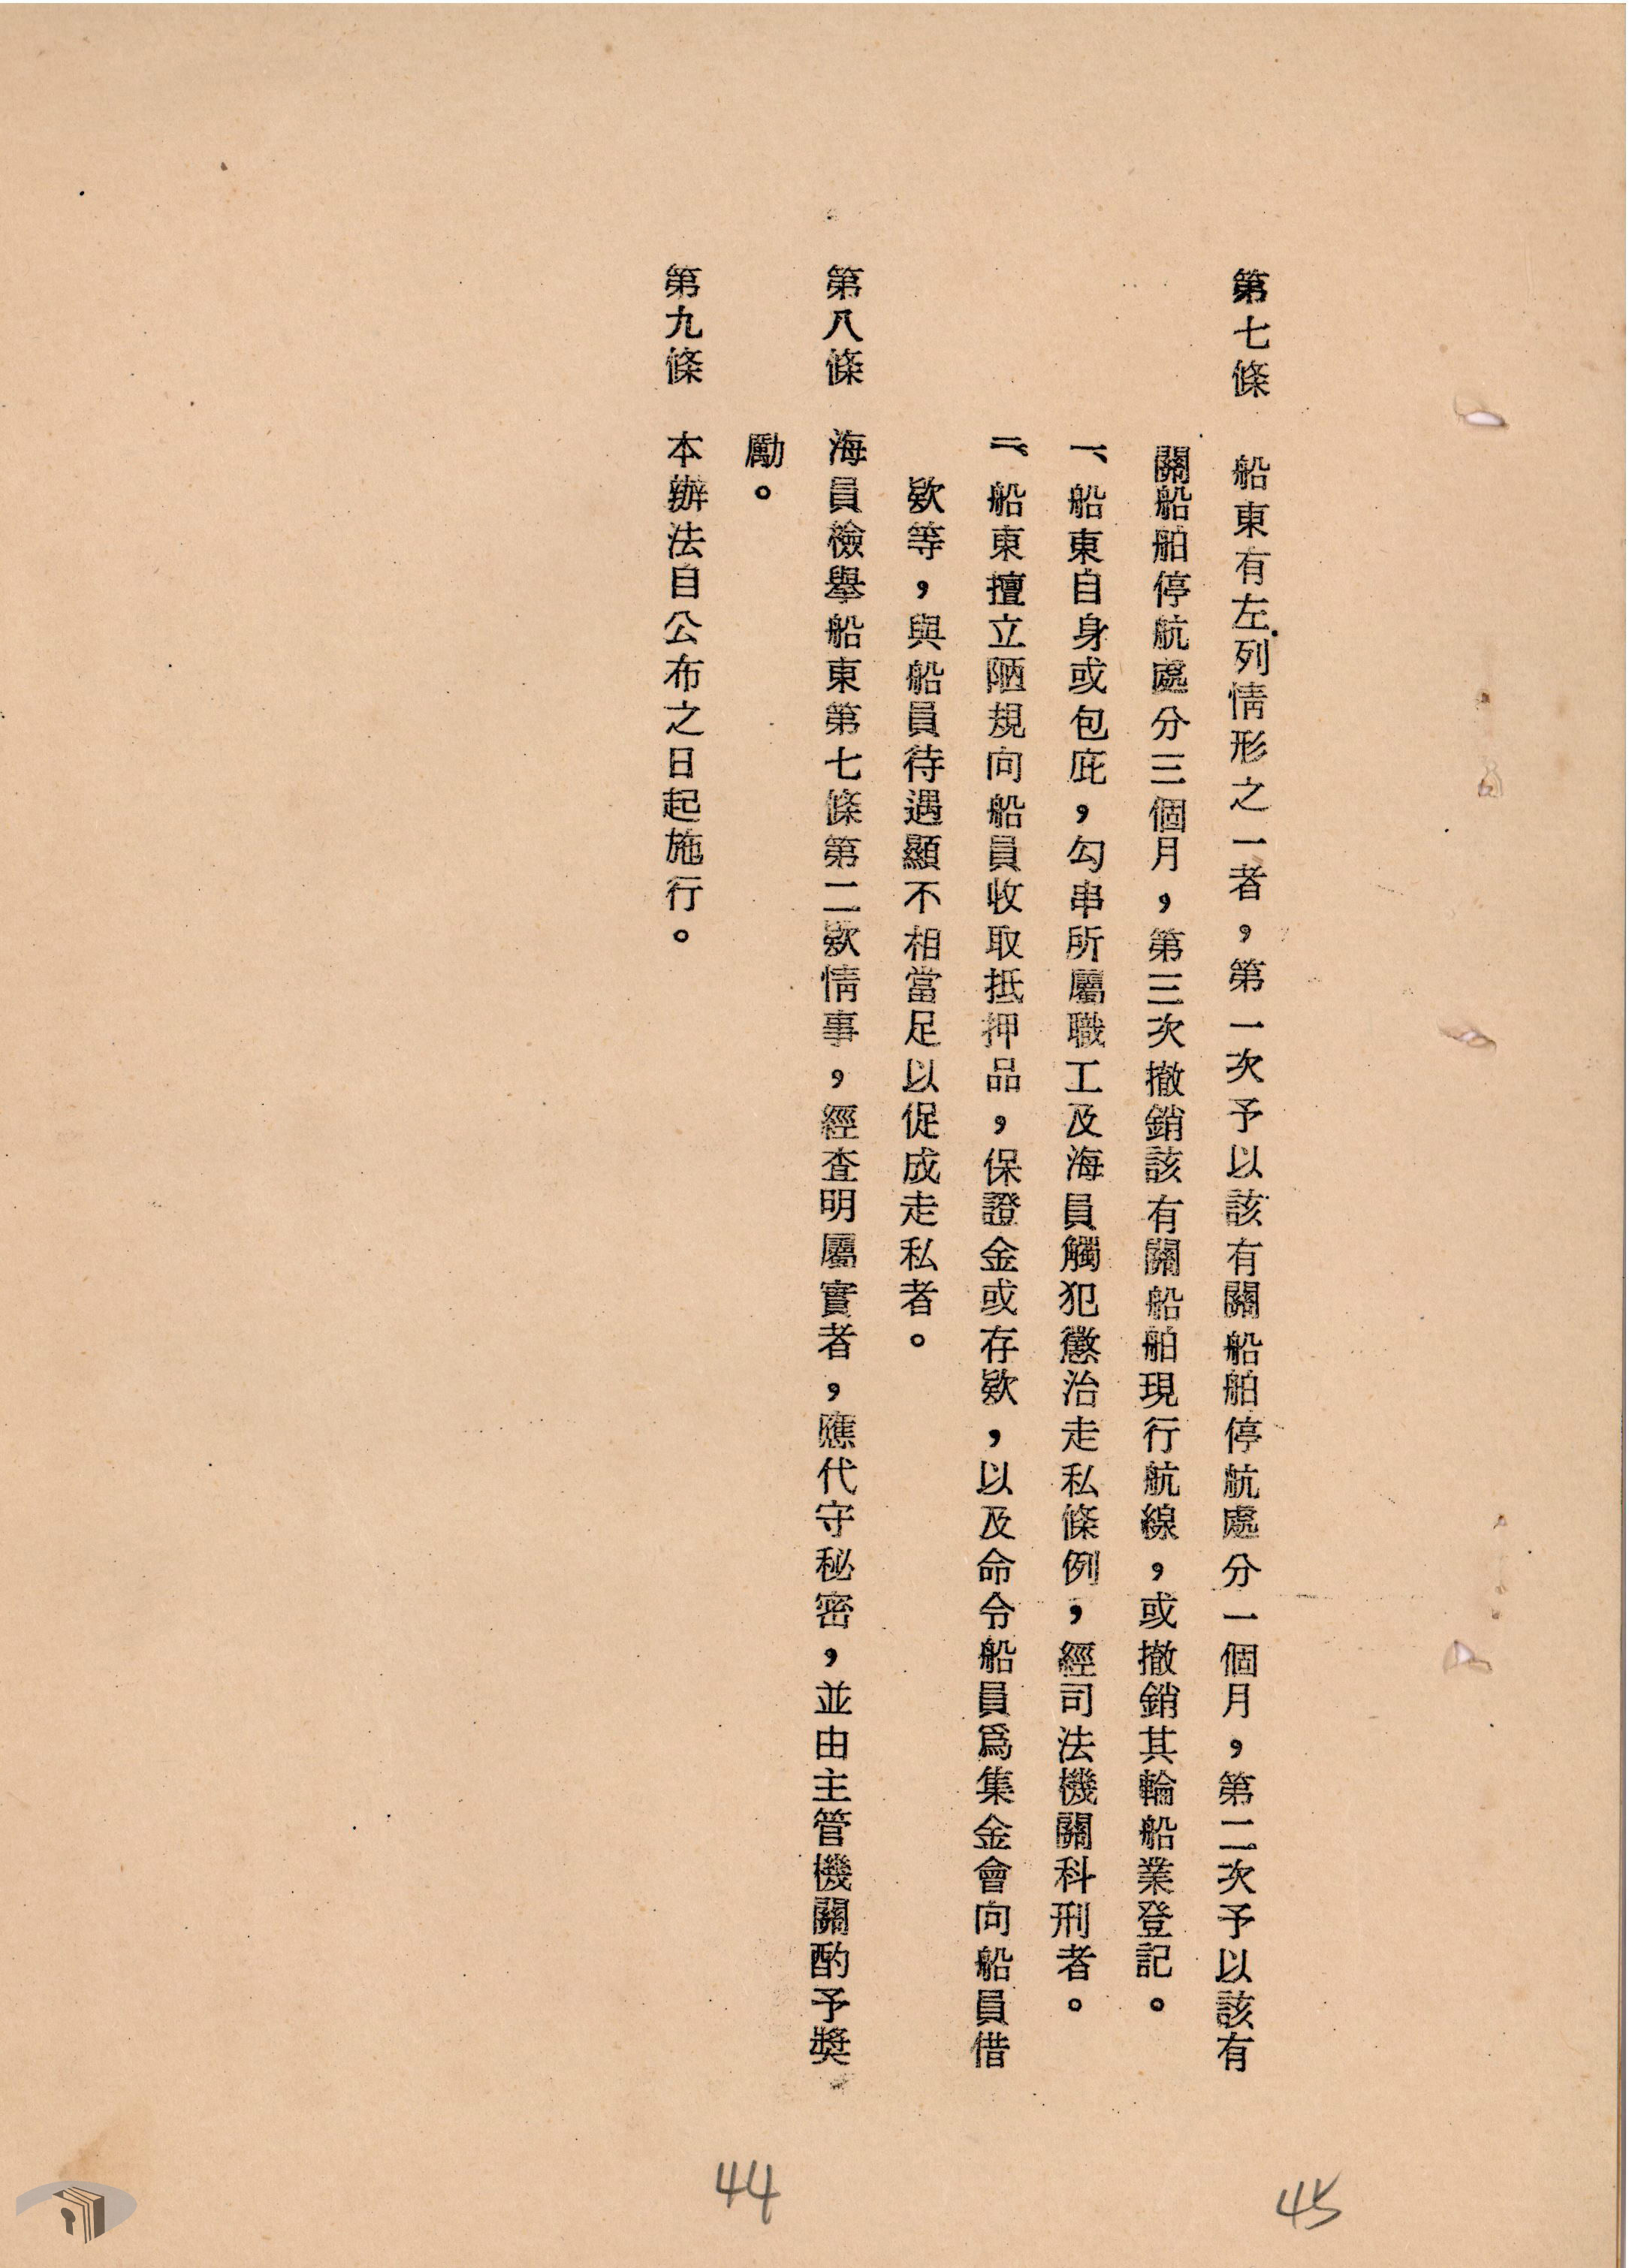 第七條　船東有左列情形之一者，第一次予以該有關船舶停航處分一個月，第二次予以該有
關船舶停航處分三個月，第三次撤銷該有關船舶現行航線，或撤銷其輪船業登記。
一、船東自身或包庇，勾串所屬職工及海員觸犯懲治走私條例，經司法機關科刑者。
二、船東擅立陋規向船員收取抵押品，保證金或存欵，以及命令船員爲集金會向船員借
欵等，與船員待遇顯不相當足以促成走私者。
第八條　海員檢舉船東第七條第二欵情事，經查明屬實者，應代守秘密，並由主管機關酌予獎
勵。
第九條　本辦法自公布之日起施行。
44
45